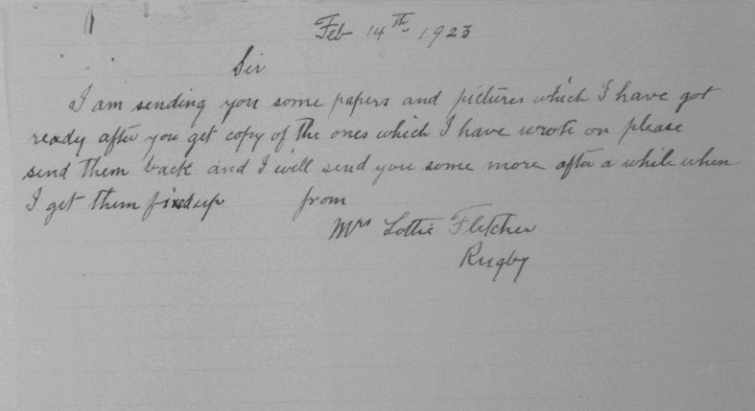 Feb 14th 1923
Sir
I am sending you some papers and pictures which I have got
ready after you get copy of the ones which I have wrote on please
send them back and I will send you some more after a while when
I get them fixed up from
Mrs Lottie Fletcher
Rugby